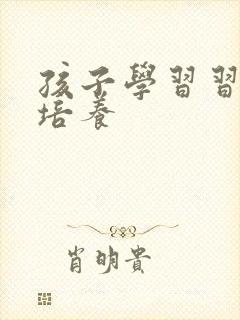 孩子學習習
培養
肖明貴